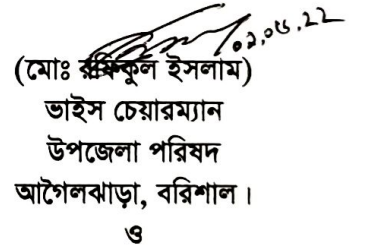 ০২.০৫.২২
(মোঃ রফিকুল ইসলাম)
ভাইস চেয়ারম্যান
উপজেলা পরিষদ
আগৈলঝাড়া, বরিশাল।
ও